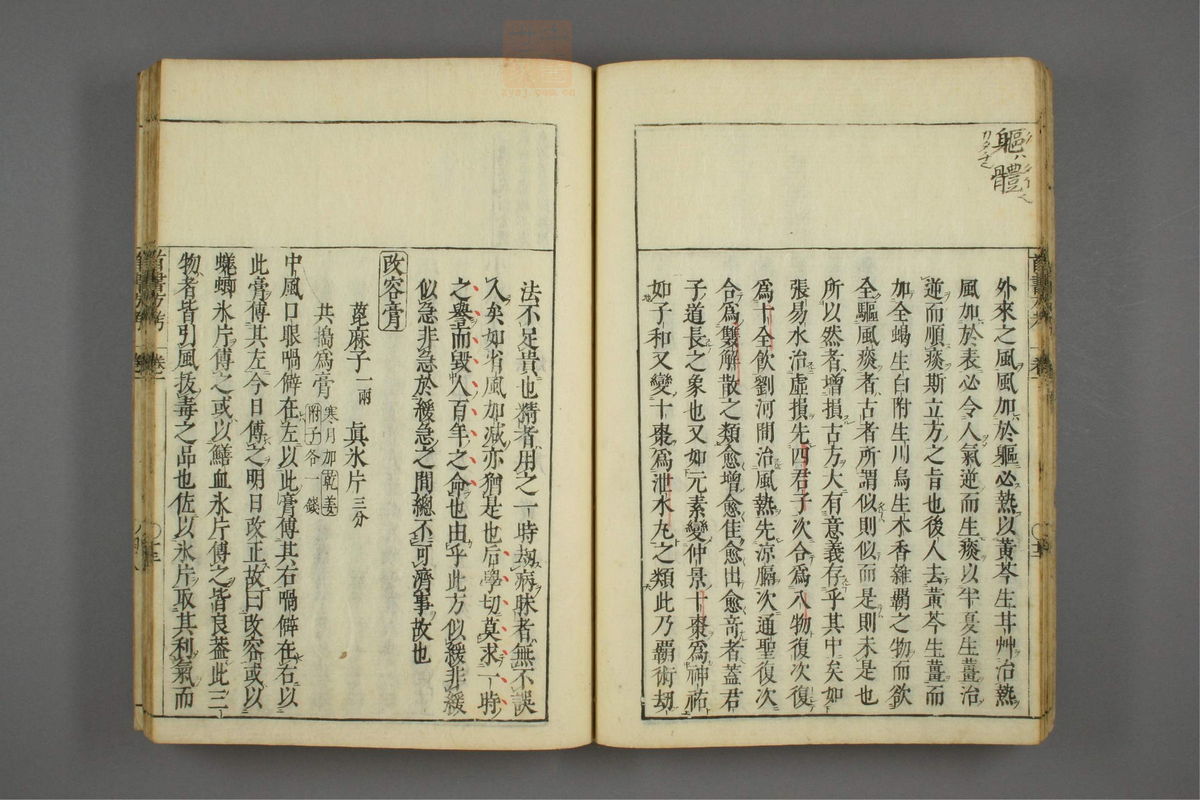 軀體
外來之風風加於軀必熱以黃芩生甘艸治熱
風加於表必令人氣逆而生痰以半夏生薑治
逆而順痰斯立方之旨也後人去黃芩生薑而
加全蝎生白附生川烏生木香雜霸之物而欲
全驅風痰者古者所謂似則似而是則未是也
所以然者增損古方大有意義存乎其中矣如
張易水治虛損先四君子次合爲八物復次復
爲十全飮劉河間治風熱先涼膈次通聖復次
合爲雙解散之類愈增愈佳愈出愈奇者蓋君
子道長之象也又如元素變仲景十棗爲神祐
如子和又變十棗爲泄水丸之類此乃覇術劫
法不足貴也精者用之一時刼病昧者無不誤
人矣如省風加減亦猶是也后學切莫求一時
之譽而毀人百年之命也由乎此方似緩非緩
似急非急於緩急之間總不可濟事故也
改容膏
蓖麻子一兩 眞氷片三分
共搗爲膏寒月加乾姜附子各一錢
中風口眼喎僻在左以此膏傅其右喎僻在右以
此膏傅其左今日傅之明日改正故曰改容或以
蟯蠐氷片傅之或以鱔血氷片傅之皆良葢此三
物者皆引風拔毒之品也佐以氷片取其利氣而